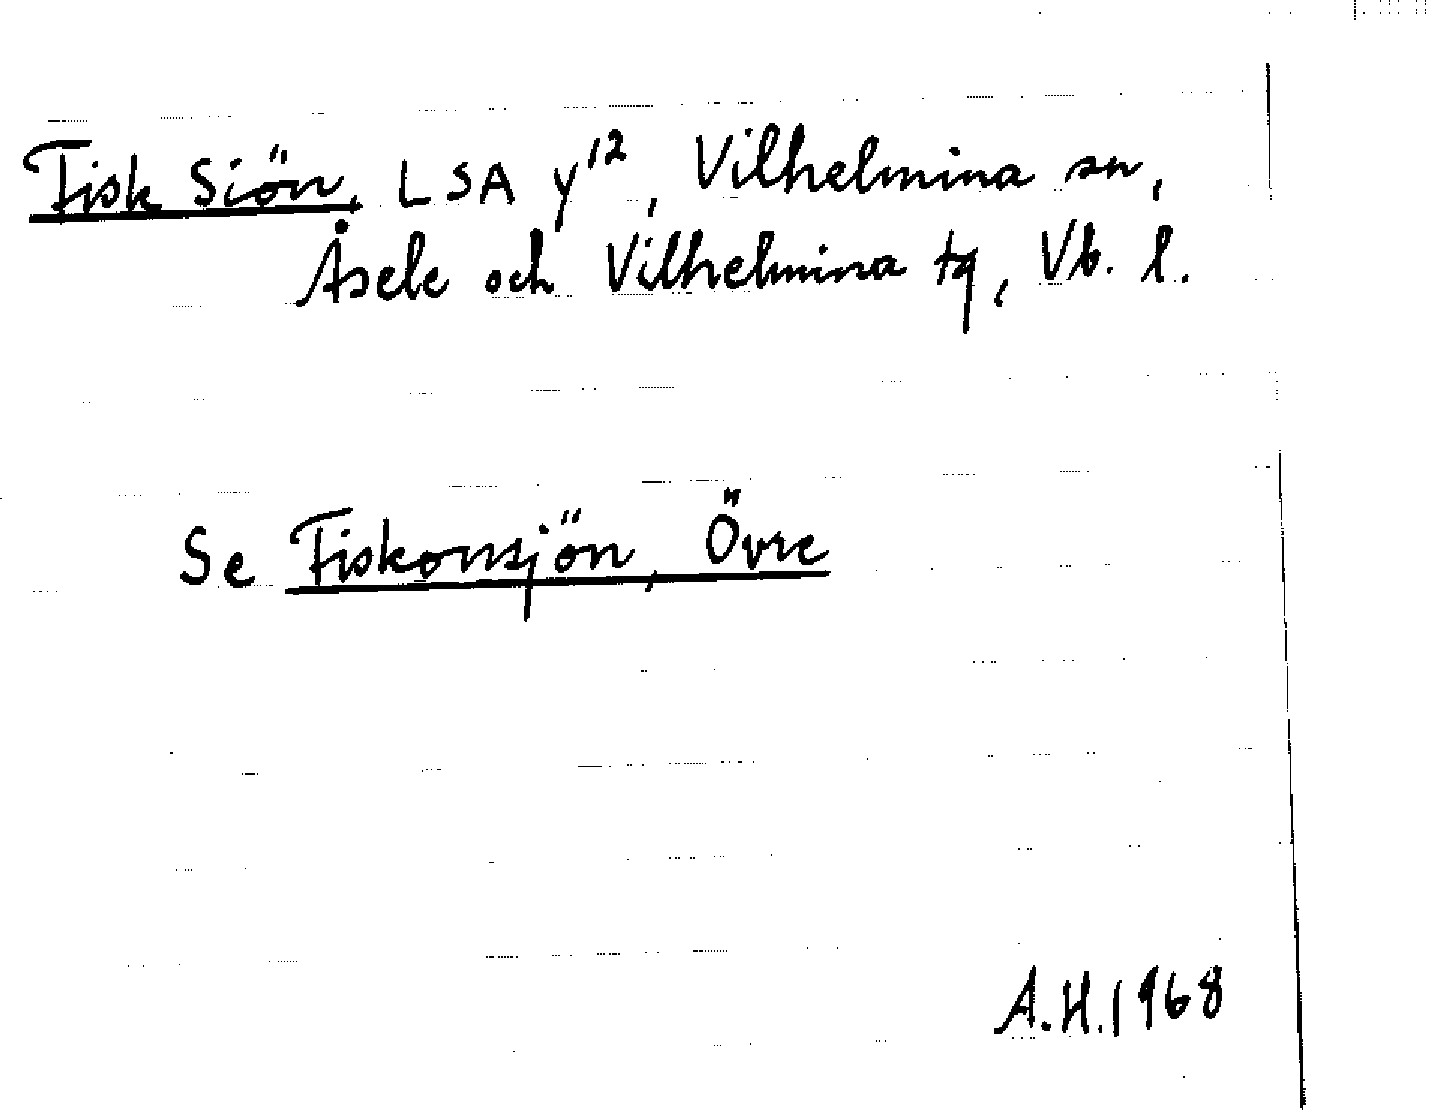 Fisk Siön, LSA y12, Vilhelmina sn,
Åsele och Vilhelmina tq, Vb. l.
Se Fiskonsjön, Övre
A.H. 1968